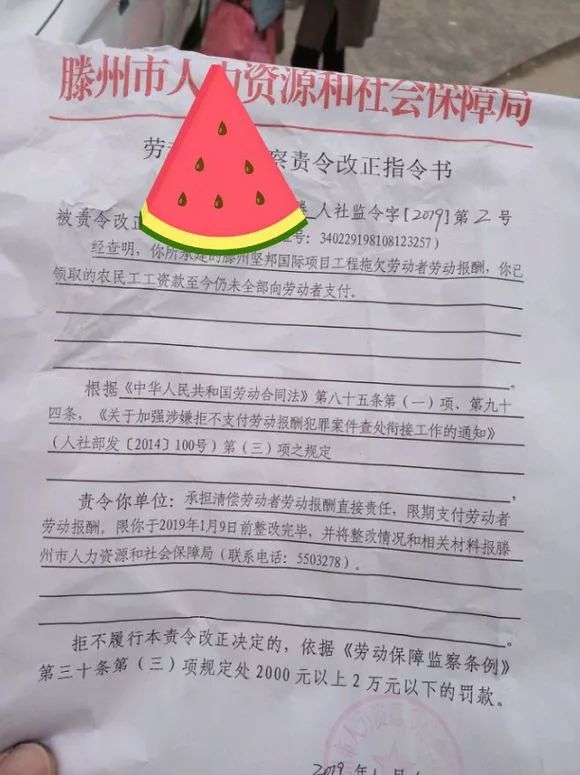 滕州市人力资源和社会保障局
劳 察责令改正指令书
人社监令字[2019]第2号
被责令改正 号：340229198108123257)
经查明，你所承建的滕州坚邦国际项目工程拖欠劳动者劳动报酬，你已
领取的农民工工资款至今仍未全部向劳动者支付。
根据《中华人民共和国劳动合同法》第八十五条第（一）项、第九十
四条，《关于加强涉嫌拒不支付劳动报酬犯罪案件查处衔接工作的通知》
（人社部发〔2014〕100号）第（三）项之规定
，
责令你单位：承担清偿劳动者劳动报酬直接责任，限期支付劳动者
劳动报酬。限你于2019年1月9日前整改完毕，并将整改情况和相关材料报滕
州市人力资源和社会保障局（联系电话：5503278）。
拒不履行本责令改正决定的，依据《劳动保障监察条例》
第三十条第（三）项规定处2000元以上2万元以下的罚款。
2019年 月